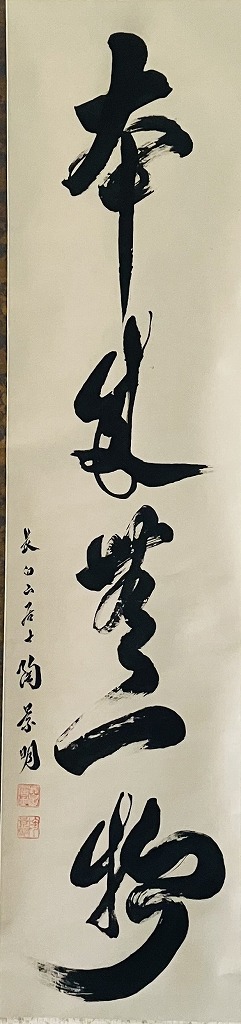 本来無一物
長白山居士 陶景明